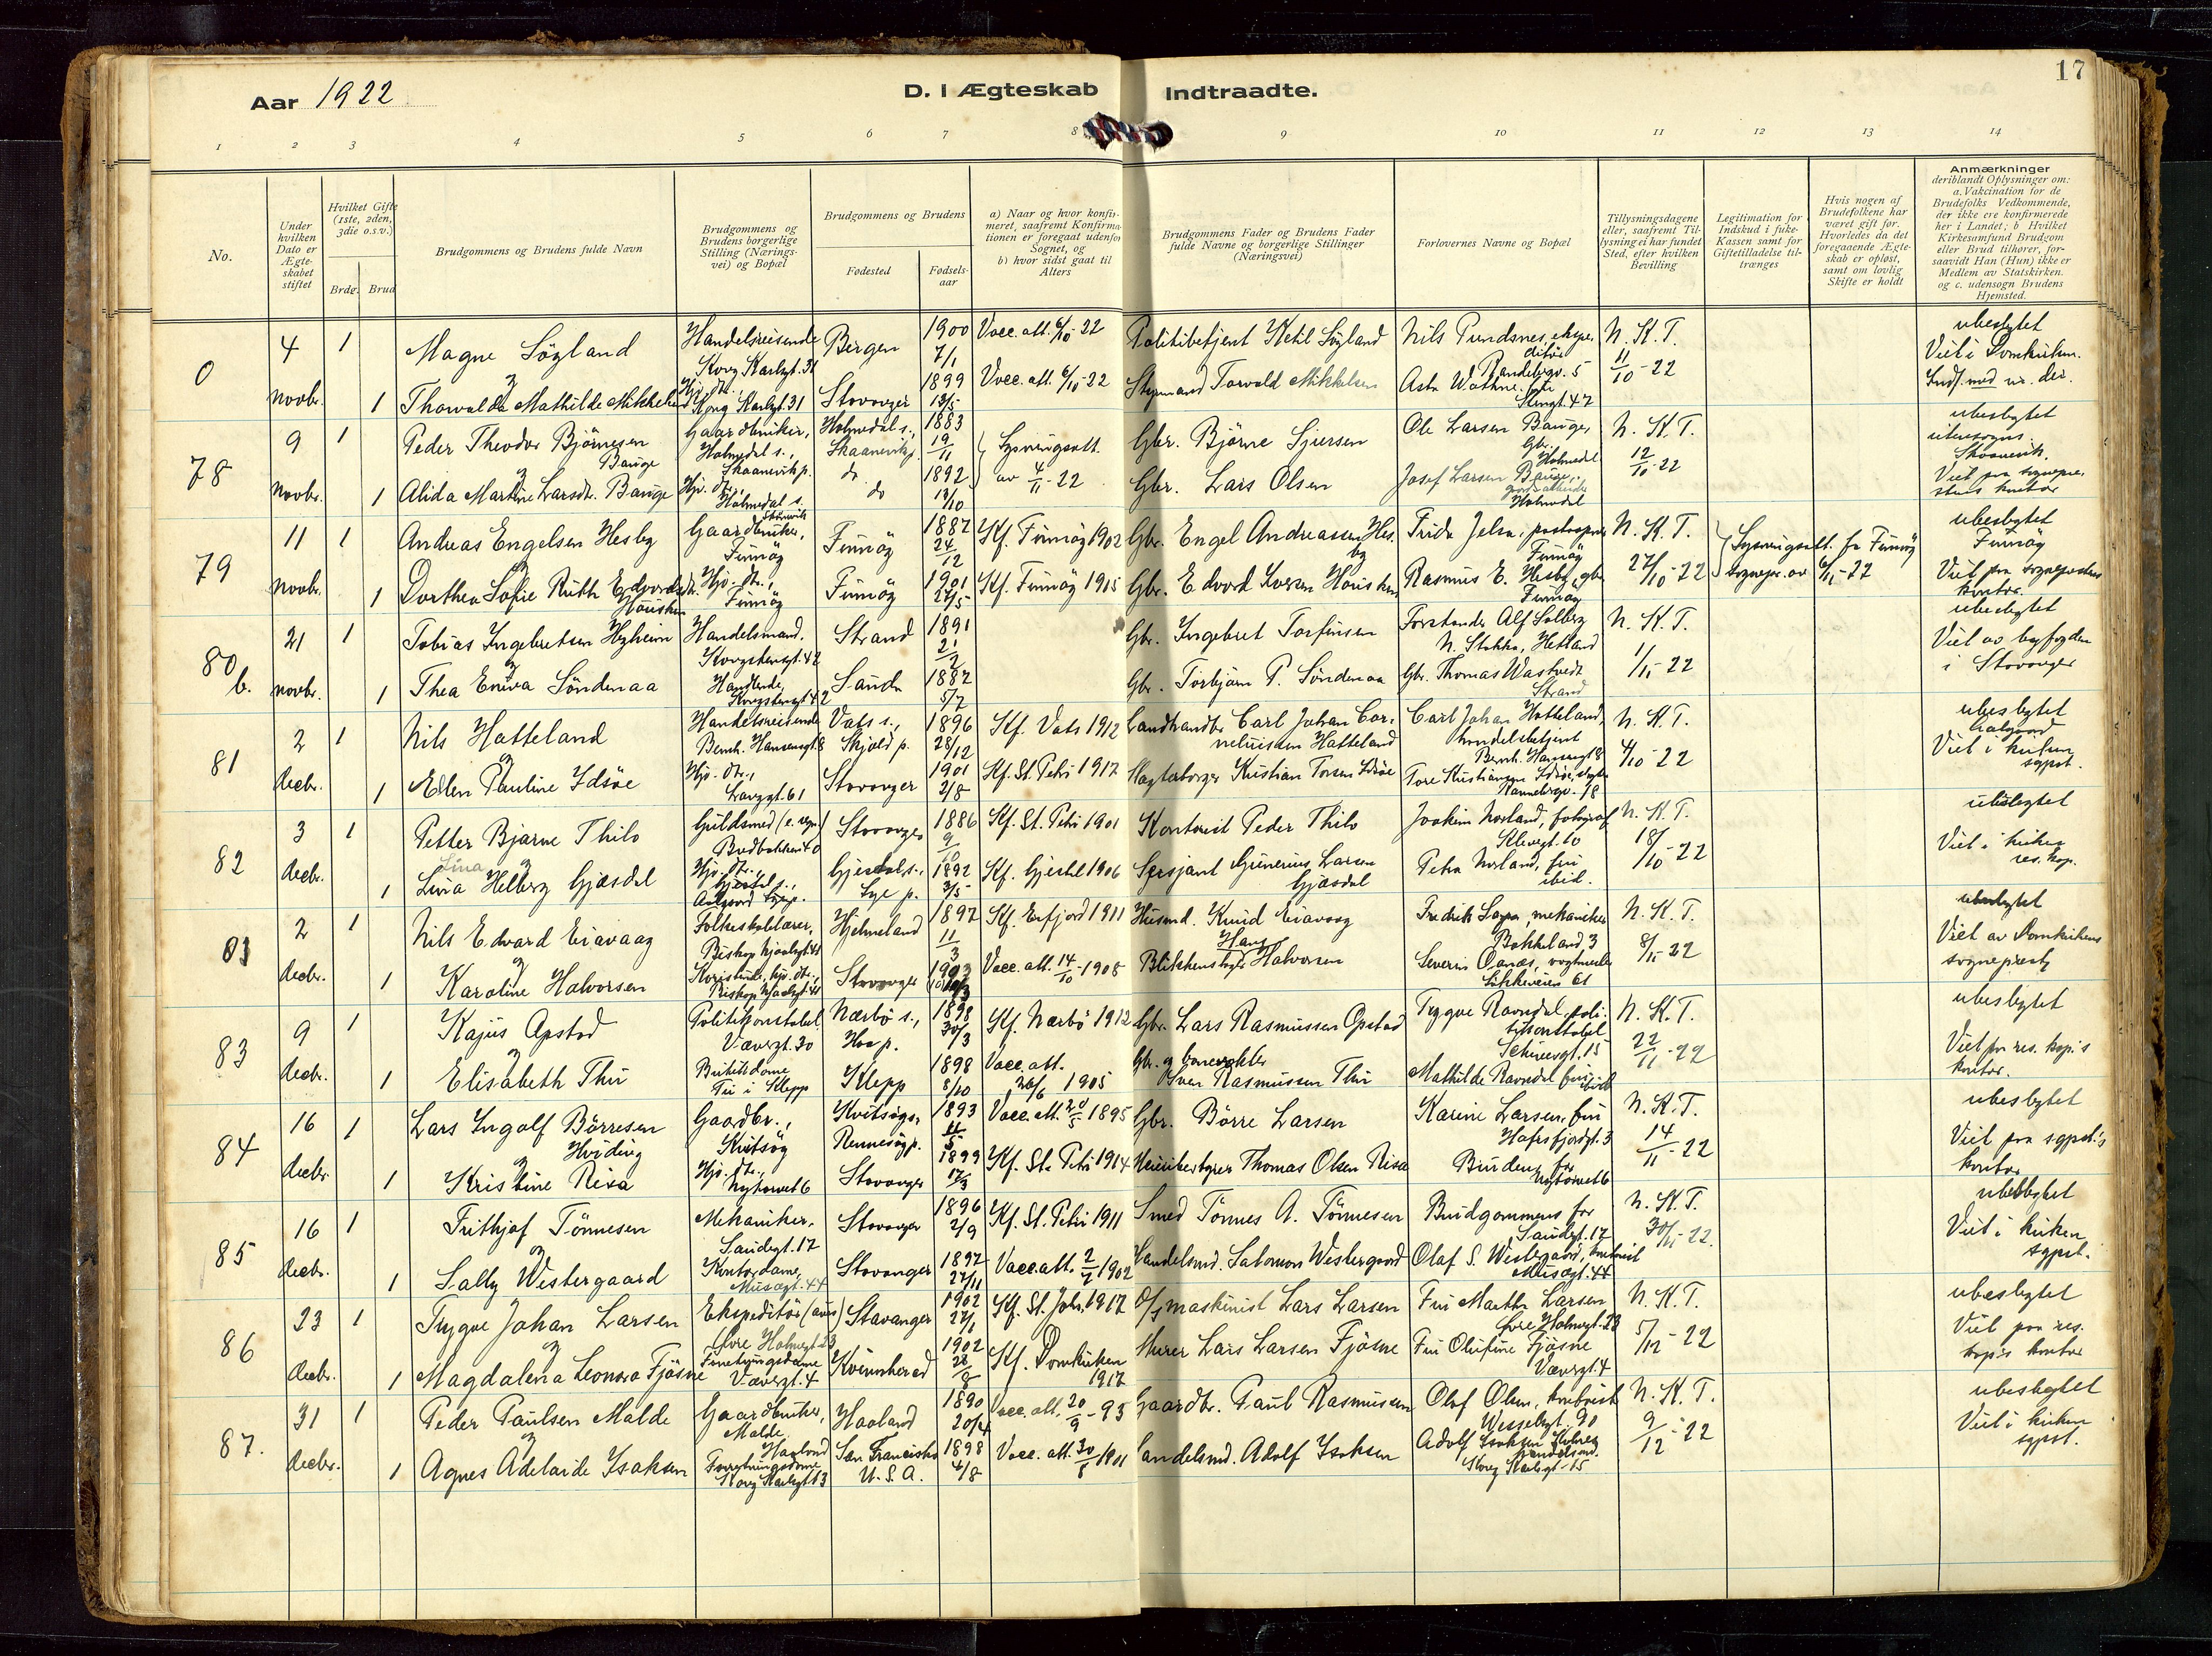 17
Aar 1922
D. I Ægteskab Indtraadte.
1 2 3 4 5 6 7 8 9 10 11 12 13 14
No.
Under hvilken Dato er Ægteskabet stiftet
Hvilket Gifte (1ste, 2den, 3die o.s.v.)
Brdg. Brud
Brudgommens og Brudens fulde Navn
Brudgommens og Brudens borgerlige Stilling (Næringsvei) og Bopæl
Brudgommens og Brudens
Fødested
Fødselsaar
a) Naar og hvor konfirmeret, saafremt Konfirmationen er foregaat udenfor Sognet, og
b) hvor sidst gaat til Alters
Brudgommens Fader og Brudens Fader fulde Navne og borgerlige Stillinger (Næringsvei)
Forlovernes Navne og Bopæl
Tillysningsdagene eller, saafremt Tillysning ei har fundet Sted, efter hvilken Bevilling
Legitimation for Indskud i fuke-Kassen samt for Giftetilladelse tiltrænges
Hvis nogen af Brudefolkene har været gift før. Hvorledes da det foregaaende Ægteskab er opløst, samt om lovlig Skifte er holdt
Anmærkninger
deriblandt Oplysninger om: a. Vakcination for de Brudefolks Vedkommende, der ikke ere konfirmerede her i Landet; b Hvilket Kirkesamfund Brudgom eller Brud tilhører, forsaavidt Han (Hun) ikke er Medlem av Statskirken. og c. udensogn Brudens Hjemsted.
0 4 1 Magne Søyland Handelsreisende Kong Karlsgt. 31 Bergen 1900 7/1 Vacc. att. 6/10-22 Politibetjent Ketil Søyland Nils Pundsnes, ekspeditør Randebergv. 5 N. K. T. ubeslegtet Viet i Domkirken.
novbr. 1 Thorvalda Mathilde Mikkelsen Hjv. dtr., Kong Karlsgt. 31 Stavanger 1899 13/5 Vacc. att. 6/10-22 Styrmand Torvald Mikkelsen 11/10-22
78 9 1 Peder Theodor Bjørnesen Bauge Gaardbruker, Holmedal s., Skaanevik p. Holmedal s., Skaanevik p. 1883 19/11 Lysningsatt. Gbr. Bjørne Sjursen Ole Larsen Bauge, Gbr. Holmedal N. K. T. ubeslegtet utensogns. Skaanevik.
novbr. 1 Alida Martine Larsdtr. Bauge Hjv. dtr., Holmedal s. Skånevik do do 1892 13/10 av 4/11-22 Gbr. Lars Olsen Josef Larsen Bauge, Holmedal 12/10-22 Viet paa sognepræstens kontor
79 11 1 Andreas Engelsen Hesby Gaardbruker, Finnøy Finnøy 1887 24/12 Kf. Finnøy 1902 Gbr. Engel Andreassen Hesby Frida Jelsa, Finnøy N. K. T. Lysningsatt. fra Finnøy ubeslegtet Finnøy
novbr. 1 Dorthea Sofie Ruth Edvardsdtr. Hausken Hjv. dtr., Finnøy Finnøy 1901 27/5 Kf. Finnøy 1915 Gbr. Edvard Iversen Hausken Rasmus E. Hesby, gbr. Finnøy 27/10-22 sognepr. av 6/11-22 Viet paa sogneprestens kontor.
80 b. 21 1 Tobias Ingebretsen Hegheim Handelsmand. Kongstensgt. 42 Strand 1891 21/2 Gbr. Ingebret Torfinsen Forstander Alf Solberg N. Stokka, Hetland N. K. T. ubeslegtet
novbr. 1 Thea Enina Söndenaa Handlende, Kongstensgt. 42 Sauda 1887 5/7 Gbr. Torbjørn P. Söndenaa Gbr. Thomas Wastvedt Strand 1/11-22 Viet av byfogden i Stavanger
81 2 1 Nils Hatteland Handelsreisende Bernh. Hansensgt. 8 Vats s., Skjold p. 1896 28/12 Kf. Vats 1912 Landhandler Carl Johan Corneliussen Hatteland Carl Johan Hatteland, handelsbetjent Bernh. Hansensgt. 8 N. K. T. ubeslegtet
decbr. 1 Ellen Pauline Idsøe Hjv. dtr., Langgt. 61 Stavanger 1901 2/8 Kf. St. Petri 1917 Slagterborger Kristian Torsen Idsøe Tore Kristiansen Idsøe, Rannebergv. 18 4/10-22 Viet i kirken sgpst.
82 3 1 Petter Bjarne Thilo Guldsmed (e. regn.) Bredbakken 40 Stavanger 1886 9/10 Kf. St. Petri 1901 Kontorist Peder Thilo Joakim Norland, fotograf Klevegt. 10 N. K. T. ubeslegtet
decbr. 1 Lina Helberg Gjæsdal Hjv. dtr., Gjestal s., Aalgaard Lye p. Gjesdal s., Lye p. 1892 3/5 Kf. Gjestal 1906 Sersjant Gunerius Larsen Gjæsdal Petra Norland, fru ibid. 18/10-22 Viet i kirken res. kap.
2 1 Nils Edvard Eiavaag Folkeskolelærer, Hjelmeland 1897 11/3 Kf. Erfjord 1911 Husmd. Knud Eiavaag Fredrik mekaniker Bakkeland 3 N. K. T. ubeslegtet
decbr. 1 Karoline Halvorsen Stavanger 1903 Vacc. att. 14/10-1908 Blikkenslager Hans Halvorsen Severin 61 8/11-22 Viet av Domkirkens sogneprest
83 9 1 Kajus Opstad Politikonstabel. Væverg. 30 Nærbø s., Haa p. 1898 30/3 Kf. Nærbø 1912 Gbr. Lars Rasmussen Opstad Trygve Ravndal, politikonstabel N. K. T. ubeslegtet
decbr. 1 Elisabeth Thu Butikdame Tu i Klepp Klepp 1898 8/10 Vacc. att. 26/6 1905 Gbr. og banevokter Sven Rasmussen Thu Mathilde Ravndal fru ibid 22/11-22 Viet paa res. kap.s kontor.
84 16 1 Lars Ingolf Börresen Hviding Gaardbr., Kvitsøy Kvitsøy s, Rennesøy p. 1893 11/5 Vacc. att. 20/5 1895 Gbr. Börre Larsen Karine Larsen, fru Hafrsfjordgt. 3 N. K. T. ubeslegtet
decbr. 1 Kristine Risa Hjv. dtr., Nytorvet 6 Stavanger 1899 17/3 Kf. St. Petri 1914 Thomas Olsen Risa Brudens far Nytorvet 6 14/11-22 Viet paa sgpst.s kontor
85 16 1 Frithjof Tönnesen Mekaniker, Saudegt. 17 Stavanger 1896 2/9 Kf. St. Petri 1911 Smed Tönnes A. Tönnesen Brudgommens far Saudegt. 17 N. K. T. ubeslegtet
decbr. 1 Sally Westergaard Kontordame, Musegt. 44 Stavanger 1897 27/11 Vacc. att. 2/7 1902 Handelsmd. Salomon Westergaard Olaf S. Westergaard, kontorist Musegt. 44 30/11-22. Viet i kirken sgpst.
86 23 1 Trygve Johan Larsen Ekspeditør (avis) Øvre Holmegt. 23 Stavanger 1902 27/1 Kf. St. Joh. 1917 D/S maskinist Lars Larsen Fru Martha Larsen Øvre Holmegt. 23 N. K. T. ubeslegtet
decbr. 1 Magdalena Leonora Fjøsne Forretningsdame Væverg. 4 Kvinnherad 1902 28/8 Kf. Domkirken 1917 Murer Lars Larsen Fjøsne Fru Olufine Fjøsne Væverg. 4 5/12-22 Viet paa res. kap.s kontor
87. 31 1 Peder Paulsen Malde Gaardbruker, Malde, Haaland Haaland 1890 20/4 Vacc. att. 20/9-95 Gaardbr. Paul Rasmussen Olaf Olsen, kontorist Wesselsgt. 90 N. K. T. ubeslegtet
decbr. 1 Agnes Adelaide Isaksen Forretningsdame Kong Karlsgt. 13 San Francisco U. S. A. 1898 4/8 Vacc. att. 30/5-1901 Handelsmd. Adolf Isaksen Adolf Isaksen handelsmd. Kong Karlsgt. 15 9/12-22 Viet i kirken sgpst.